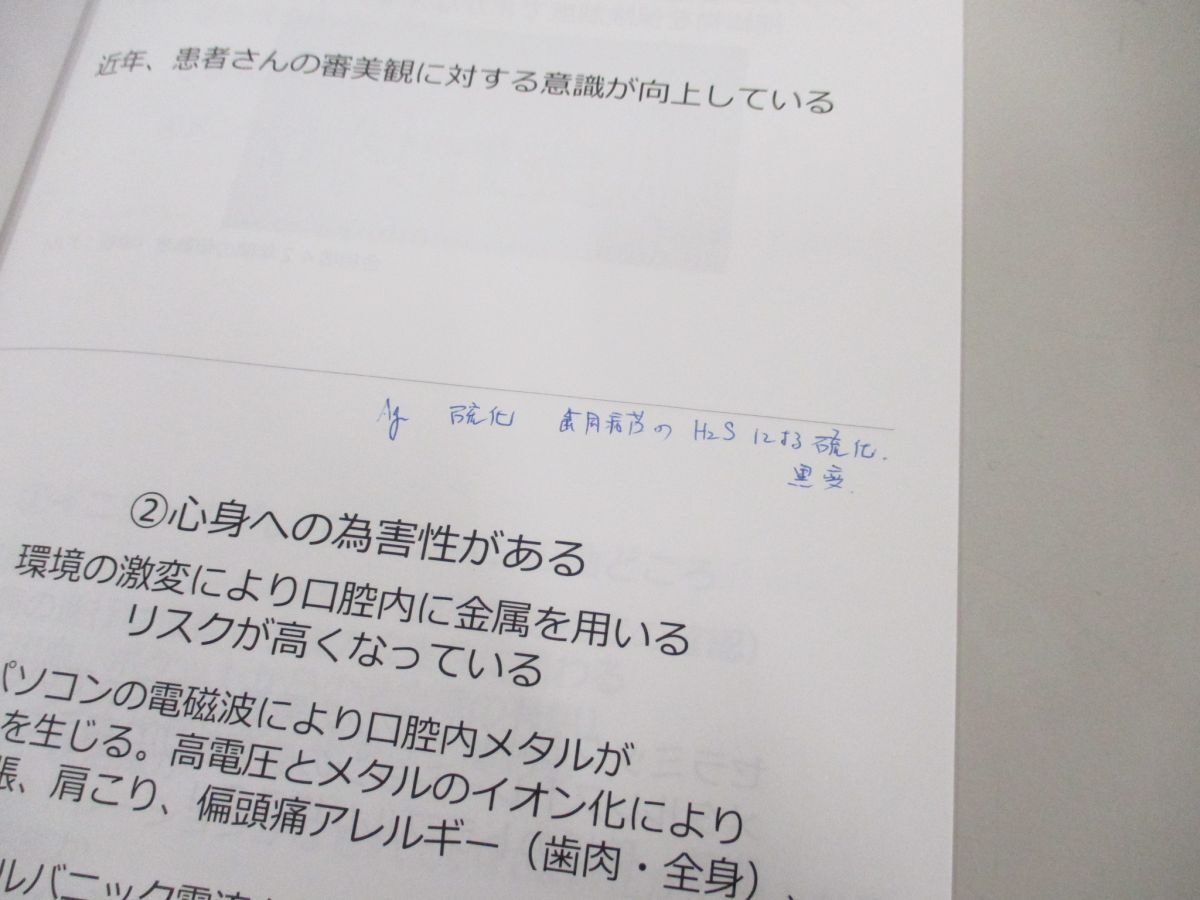 近年、患者さんの審美観に対する意識が向上している
Ag 硫化 歯周病菌の H2S による硫化.
黒変.
②心身への為害性がある
環境の激変により口腔内に金属を用いる
リスクが高くなっている
パソコンの電磁波により口腔内メタルが
を生じる。高電圧とメタルのイオン化により
張、肩こり、偏頭痛アレルギー（歯肉・全身）、
ルバニック電流